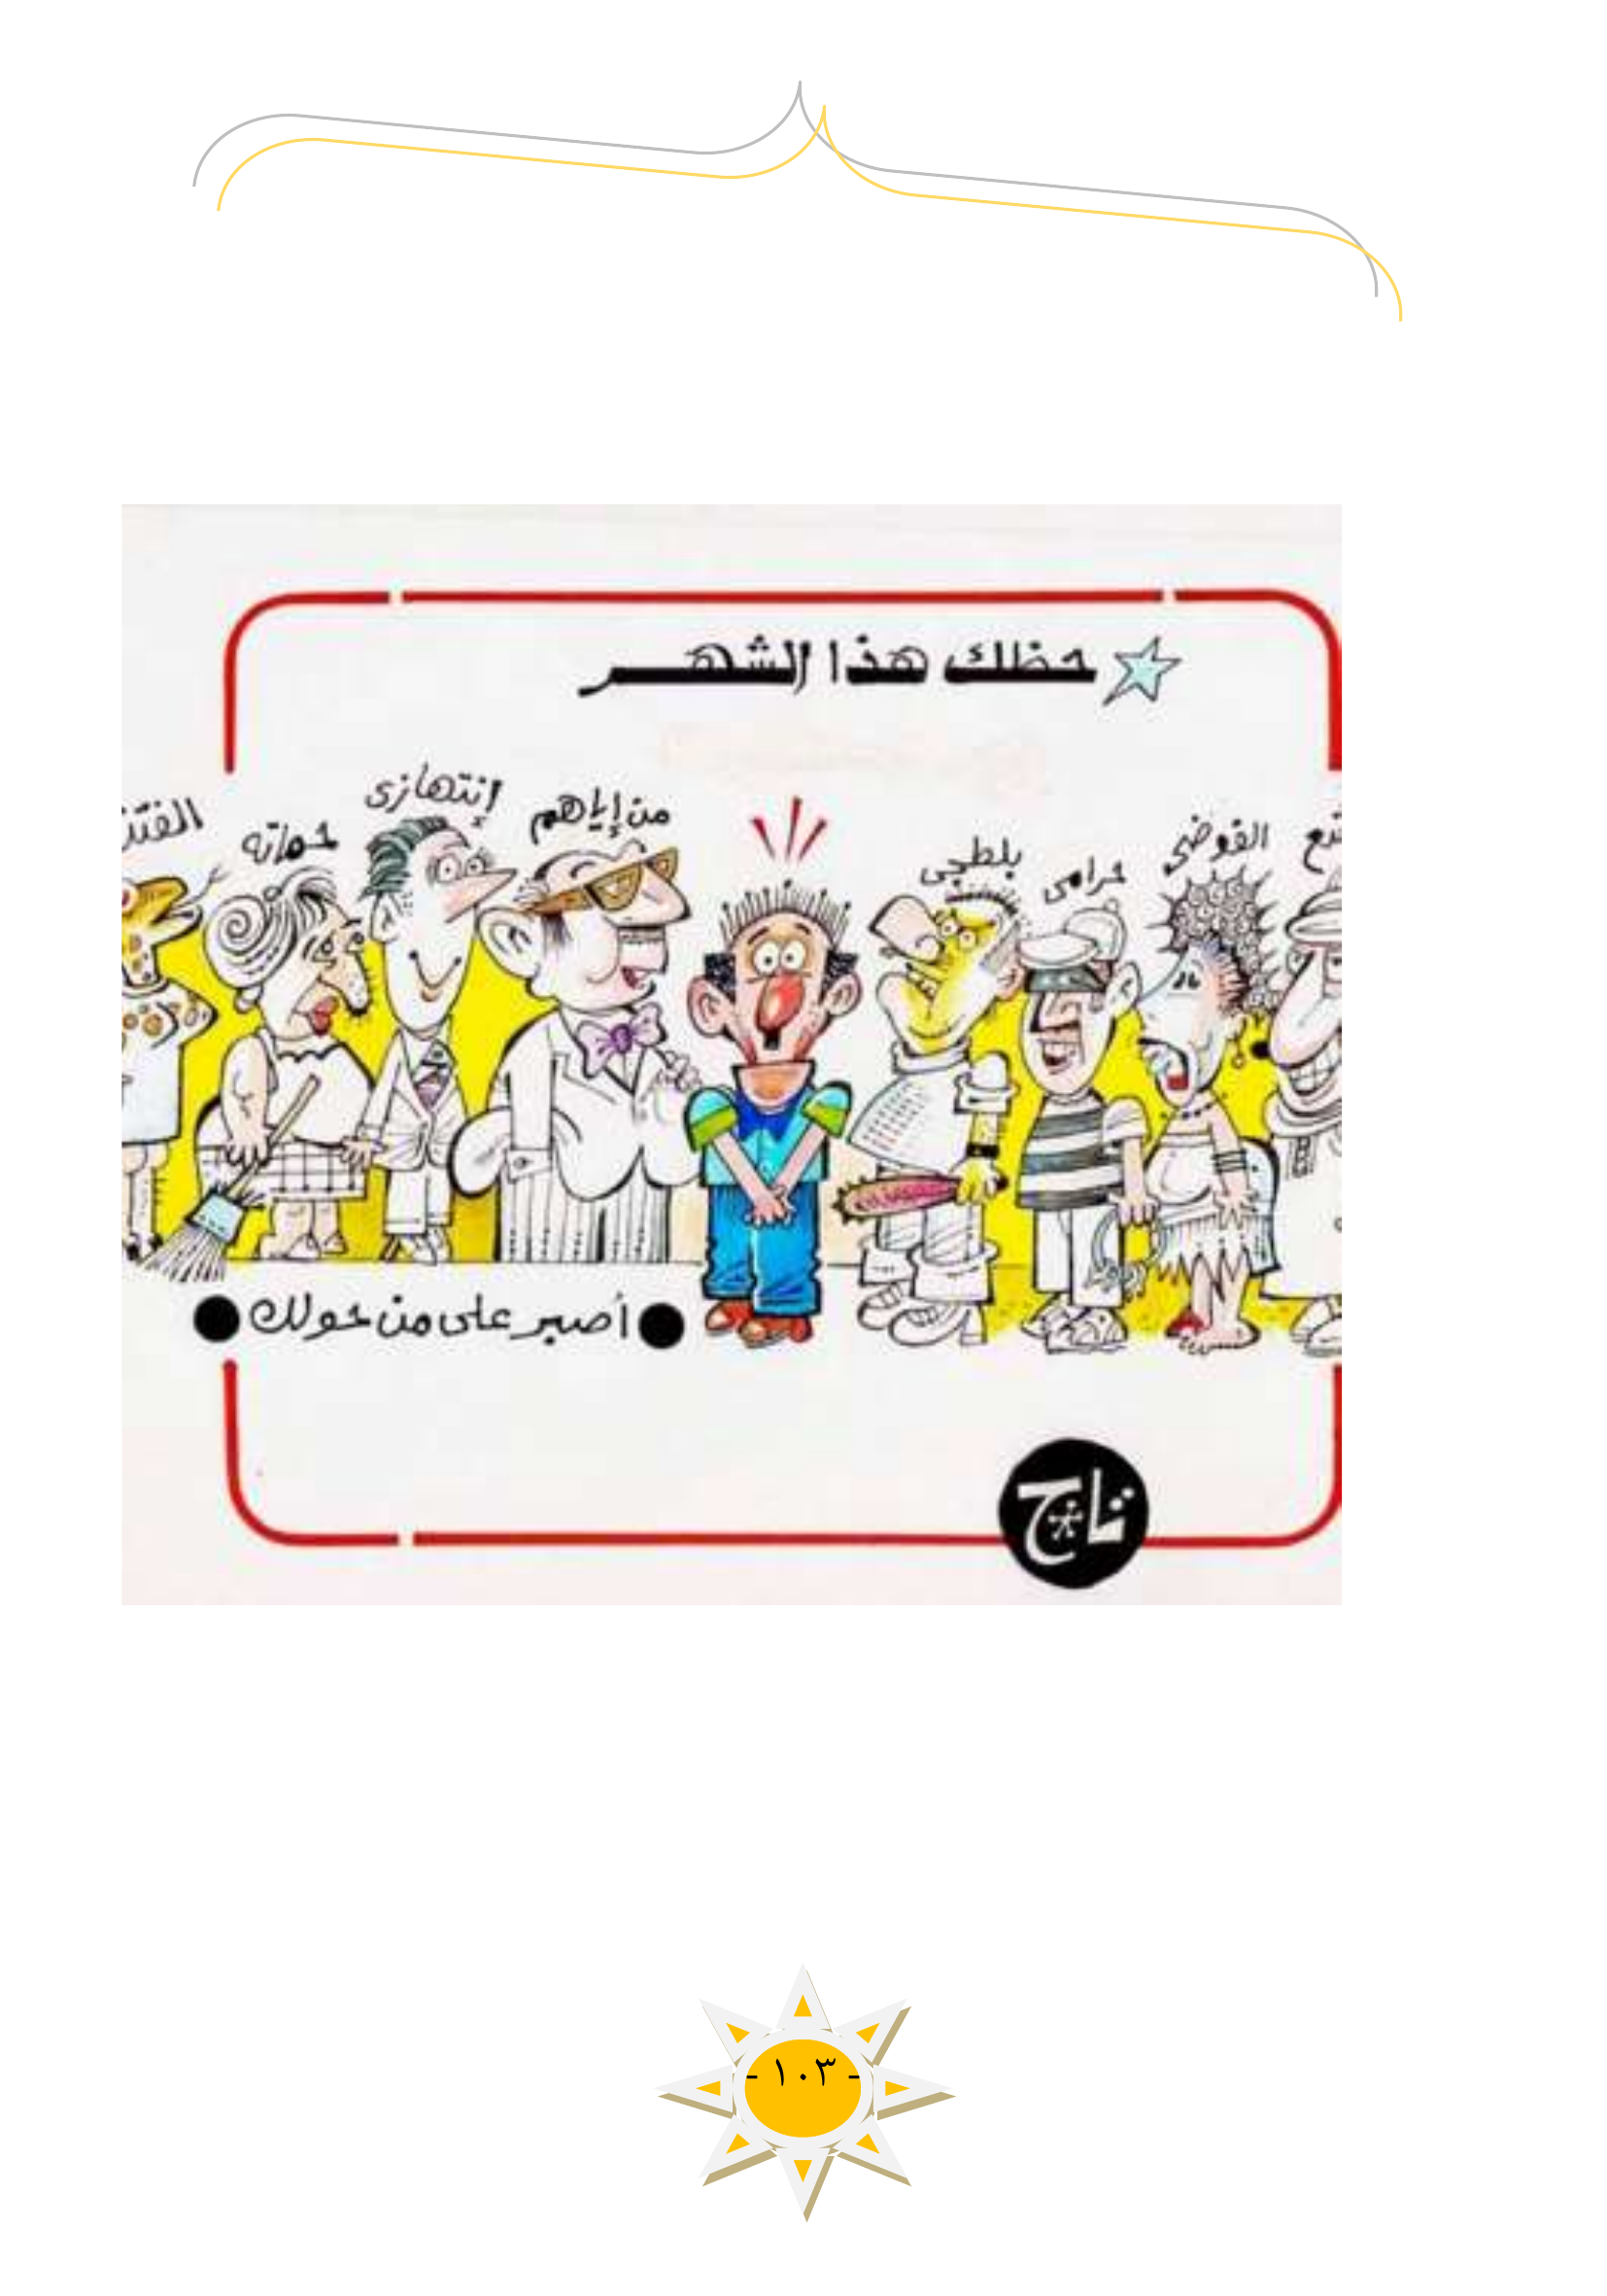 حظلك هذا الشهر
الفوضى
حرامى
بلطجى
من إياهم
إنتهازى
حماته
● أصبر على من حولك ●
تاج
- ١٠٣ -